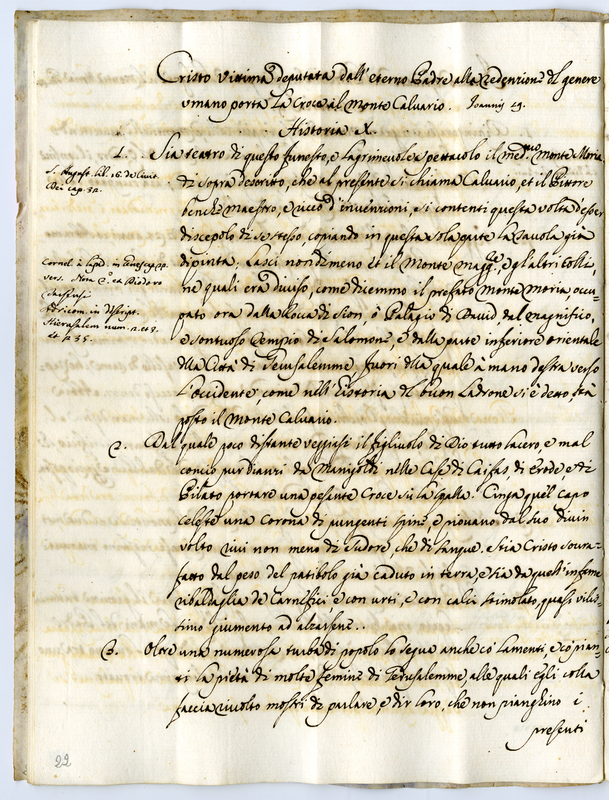 Cristo vittima deputata dall'eterno Padre alla redenzione del genere
umano porta la Croce al Monte Calvario. Joannis 19.
Historia X.
1. Sia teatro di questo funesto, e lagrimevole spettacolo il medmo monte Moria
S. August. lib. 16. de Civit.
Dei cap. 32.
di sopra descritto, che al presente si chiama Calvario, et il Pittore
benche maestro, e ricco d'invenzioni, si contenti questa volta d'esser
discepolo di se stesso, copiando in questa sola parte la tavola già
Cornel. à Lapid. in
vers.
Adricom. in Descript.
Hierusalem num.
et 235.
dipinta. Lasci nondimeno et il Monte magge, e gl'altri colli,
ne quali era diviso, come dicemmo il prefato Monte Moria, occu-
pato ora dalla Rocca di Sion, ò Palagio di David, dal magnifico,
e sontuoso Tempio di Salomone, e dalla parte inferiore orientale
della Città di Gerusalemme, fuori della quale à mano destra verso
l'occidente, come nell'historia del buon Ladrone si è detto, stà
posto il monte Calvario.
2. Dal quale poco distante veggiasi il figliuolo di Dio tutto lacero, e mal
concio pur dianzi da Manigoldi nelle Case di Caifas, di Erode, e di
Pilato portare una pesante Croce sù la spalla. Cinga quel capo
celeste una corona di pungenti spine, e piovano dal suo divin
volto rivi non meno di sudore, che di sangue. Stia Cristo sovra-
fatto dal peso del patibolo già caduto in terra, e sia da quell'infame
ribaldaglia de Carnefici, e con urti, e con calci stimolato, quasi vilis-
simo giumento ad alzarsene.
3. Oltre una numerosa turba di popolo lo segue anche co' lamenti, e co' pian-
ti la pietà di molte femine di Gerusalemme, alle quali Egli colla
faccia rivolto mostri di parlare, e dir loro, che non pianghino i
presenti
22